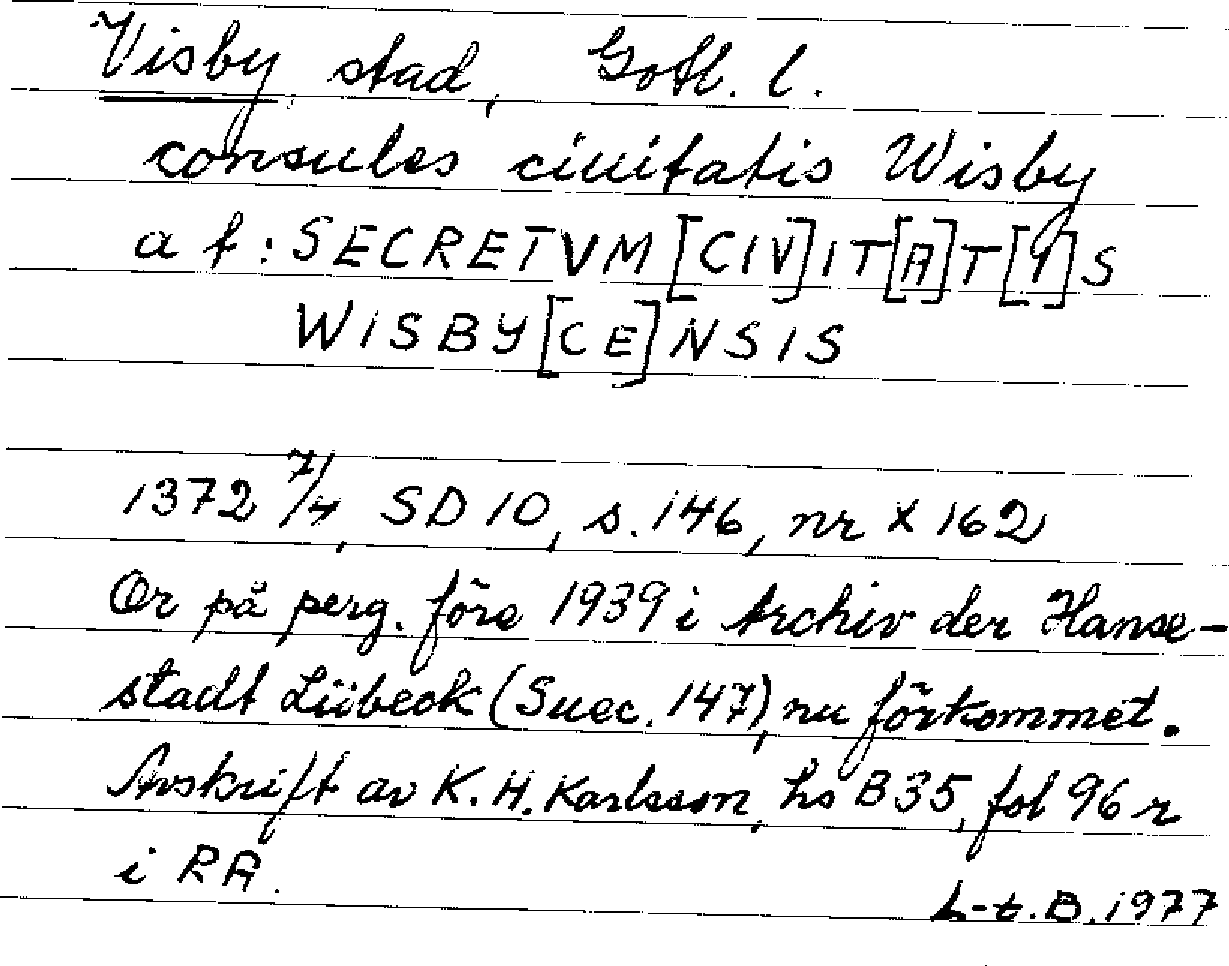 Visby stad, Gotl. l.
consules ciuitatis Wisby
a f: SECRETVM [CIV]IT[A]T[Y]S
WISBY[CE]NSIS
1372 7/4, SD 10, s. 146, nr X 162
Or på perg. före 1939 i Archiv der Hanse-
stadt Lübeck (Suec. 147), nu förkommet.
Avskrift av K. H. Karlsson, hs B 35, fol 96 r
i RA.
L-t. B. 1977